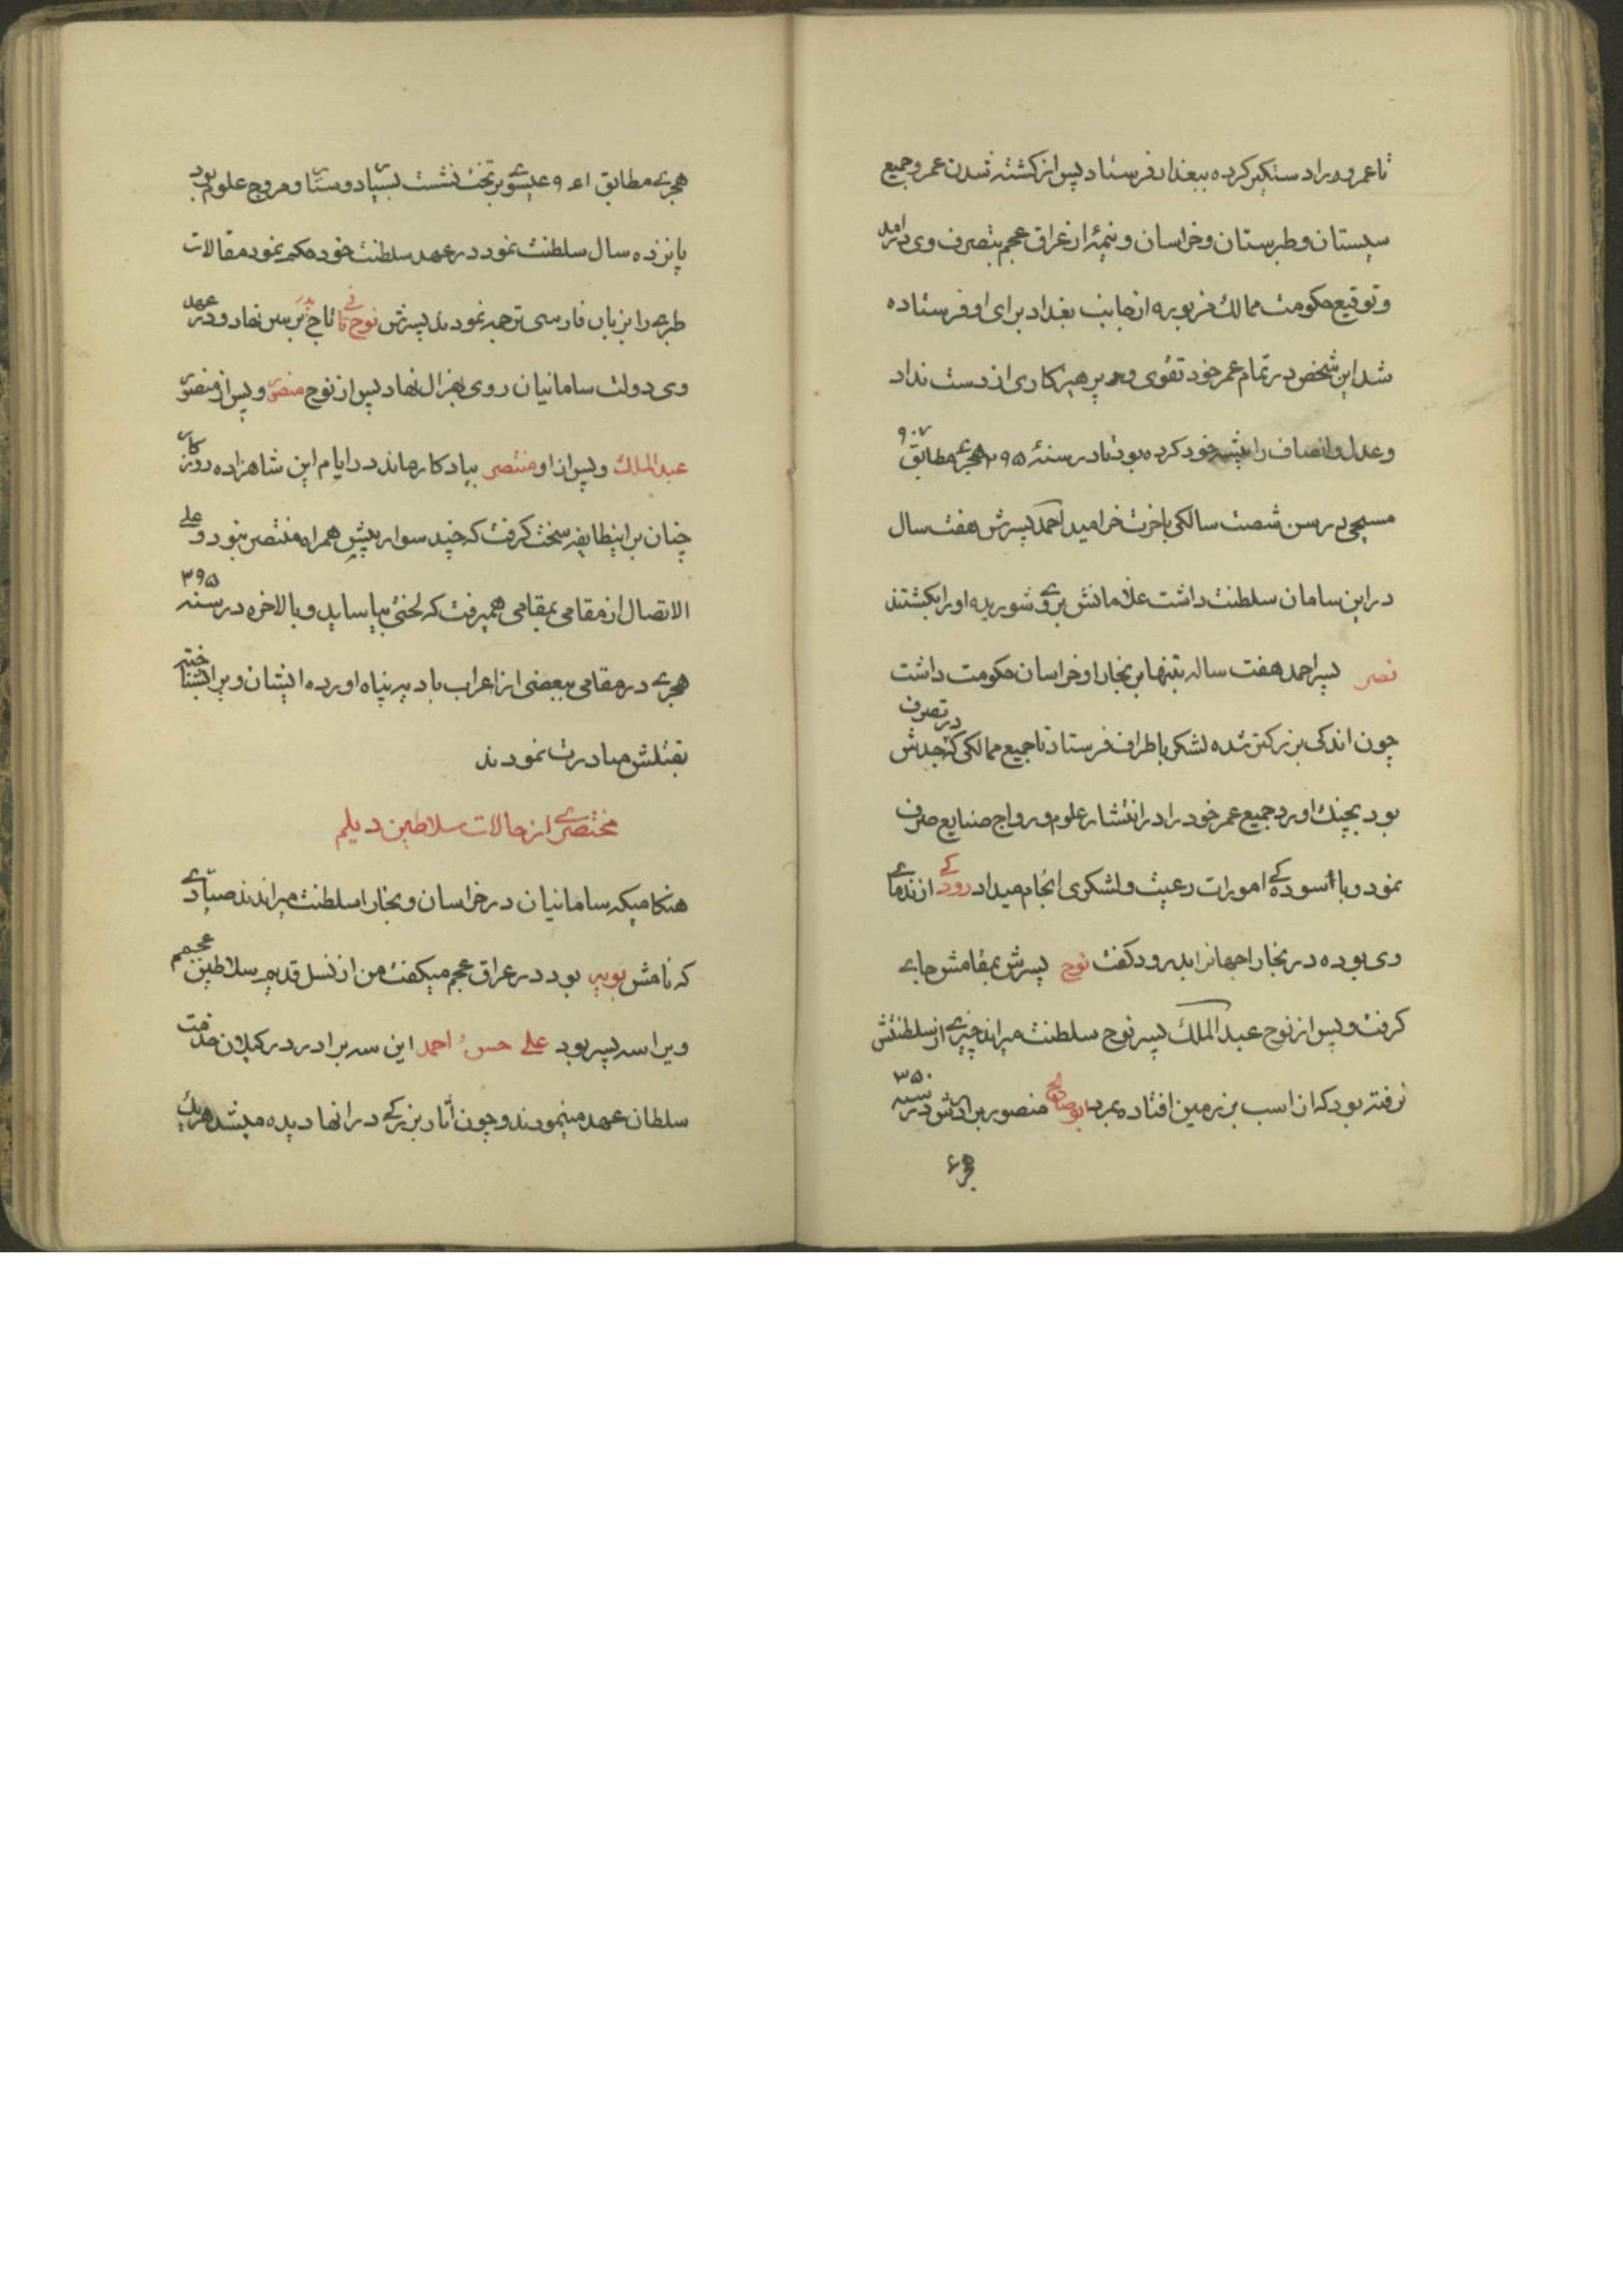 تا عمرو را دستکیر کرده ببغداد فرستاد پس از کشته شدن عمرو جمیع
سیستان و طبرستان و خراسان و نیمهٔ از عراق عجم بتصرف وی در امد
و توقیع حکومت ممالک مزبوره از جانب بغداد برای او فرستاده
شد این شخص در تمام عمر خود تقوی و پرهیزکاری از دست نداد
و عدل و انصاف را پیشه خود کرده بود تا در سنهٔ ۲۹۵ هجری مطابق ۹۰۷
مسیحی در سن شصت سالکی باخرت خرامید احمد پسرش هفت سال
در این سامان سلطنت داشت غلامانش بروی شوریده او را بکشتند
نصر پسر احمد هفت ساله بتنها بر بخارا و خراسان حکومت داشت
چون اندکی بزرکتر شده لشکر باطراف فرستاد تا جمیع ممالکی که در تصرف جدش
بود بچنک اورد جمیع عمر خود را در انتشار علوم و رواج صنایع صرف
نمود و با اسوده کی امورات رعیت و لشکری انجام میداد رودکی از ندمای
وی بوده در بخارا جهانرا بدرود کفت نوح پسرش بمقامش جای
کرفت و پس از نوح عبد الملک پسر نوح سلطنت میراند چیزی از سلطنتش
نرفته بود که از اسب بزمین افتاده بمرد ابو صالح منصور برادرش در سنه ۳۵۰
هجری
هجری مطابق ۹۶۱ عیسوی بر تخت نشست بسیار دوستار و مروج علوم بود
پانزده سال سلطنت نمود در عهد سلطنت خود حکم نمود مقالات
طبری را بزبان فارسی ترجمه نمودند پسرش نوح ثانی تاج پدر بر سر نهاد و در عهد
وی دولت سامانیان روی بهزال نهاد پس از نوح منصور و پس از منصور
عبد الملک و پس از او منتصر بیادکار ماند در ایام این شاهزاده روزکار
چنان بر اینطایفه سخت کرفت که چند سوار بیش همراه منتصر نبود و علی
الاتصال از مقامی بمقامی همیرفت که لختی بیاساید و بالاخره در سنه ۳۹۵
هجری در مقامی ببعضی از اعراب بادیه پناه اورده ایشان ویرا شناخته
بقتلش مبادرت نمودند
مختصری از حالات سلاطین دیلم
هنکامیکه سامانیان در خراسان و بخارا سلطنت میراندند صیادی
که نامش بویه بود در عراق عجم میکفت من از نسل قدیم سلاطین عجمم
ویرا سه پسر بود علی حسن احمد این سه برادر در کیلان خدمت
سلطان عهد مینمودند و چون آثار بزرکی در انها دیده میشد هریک